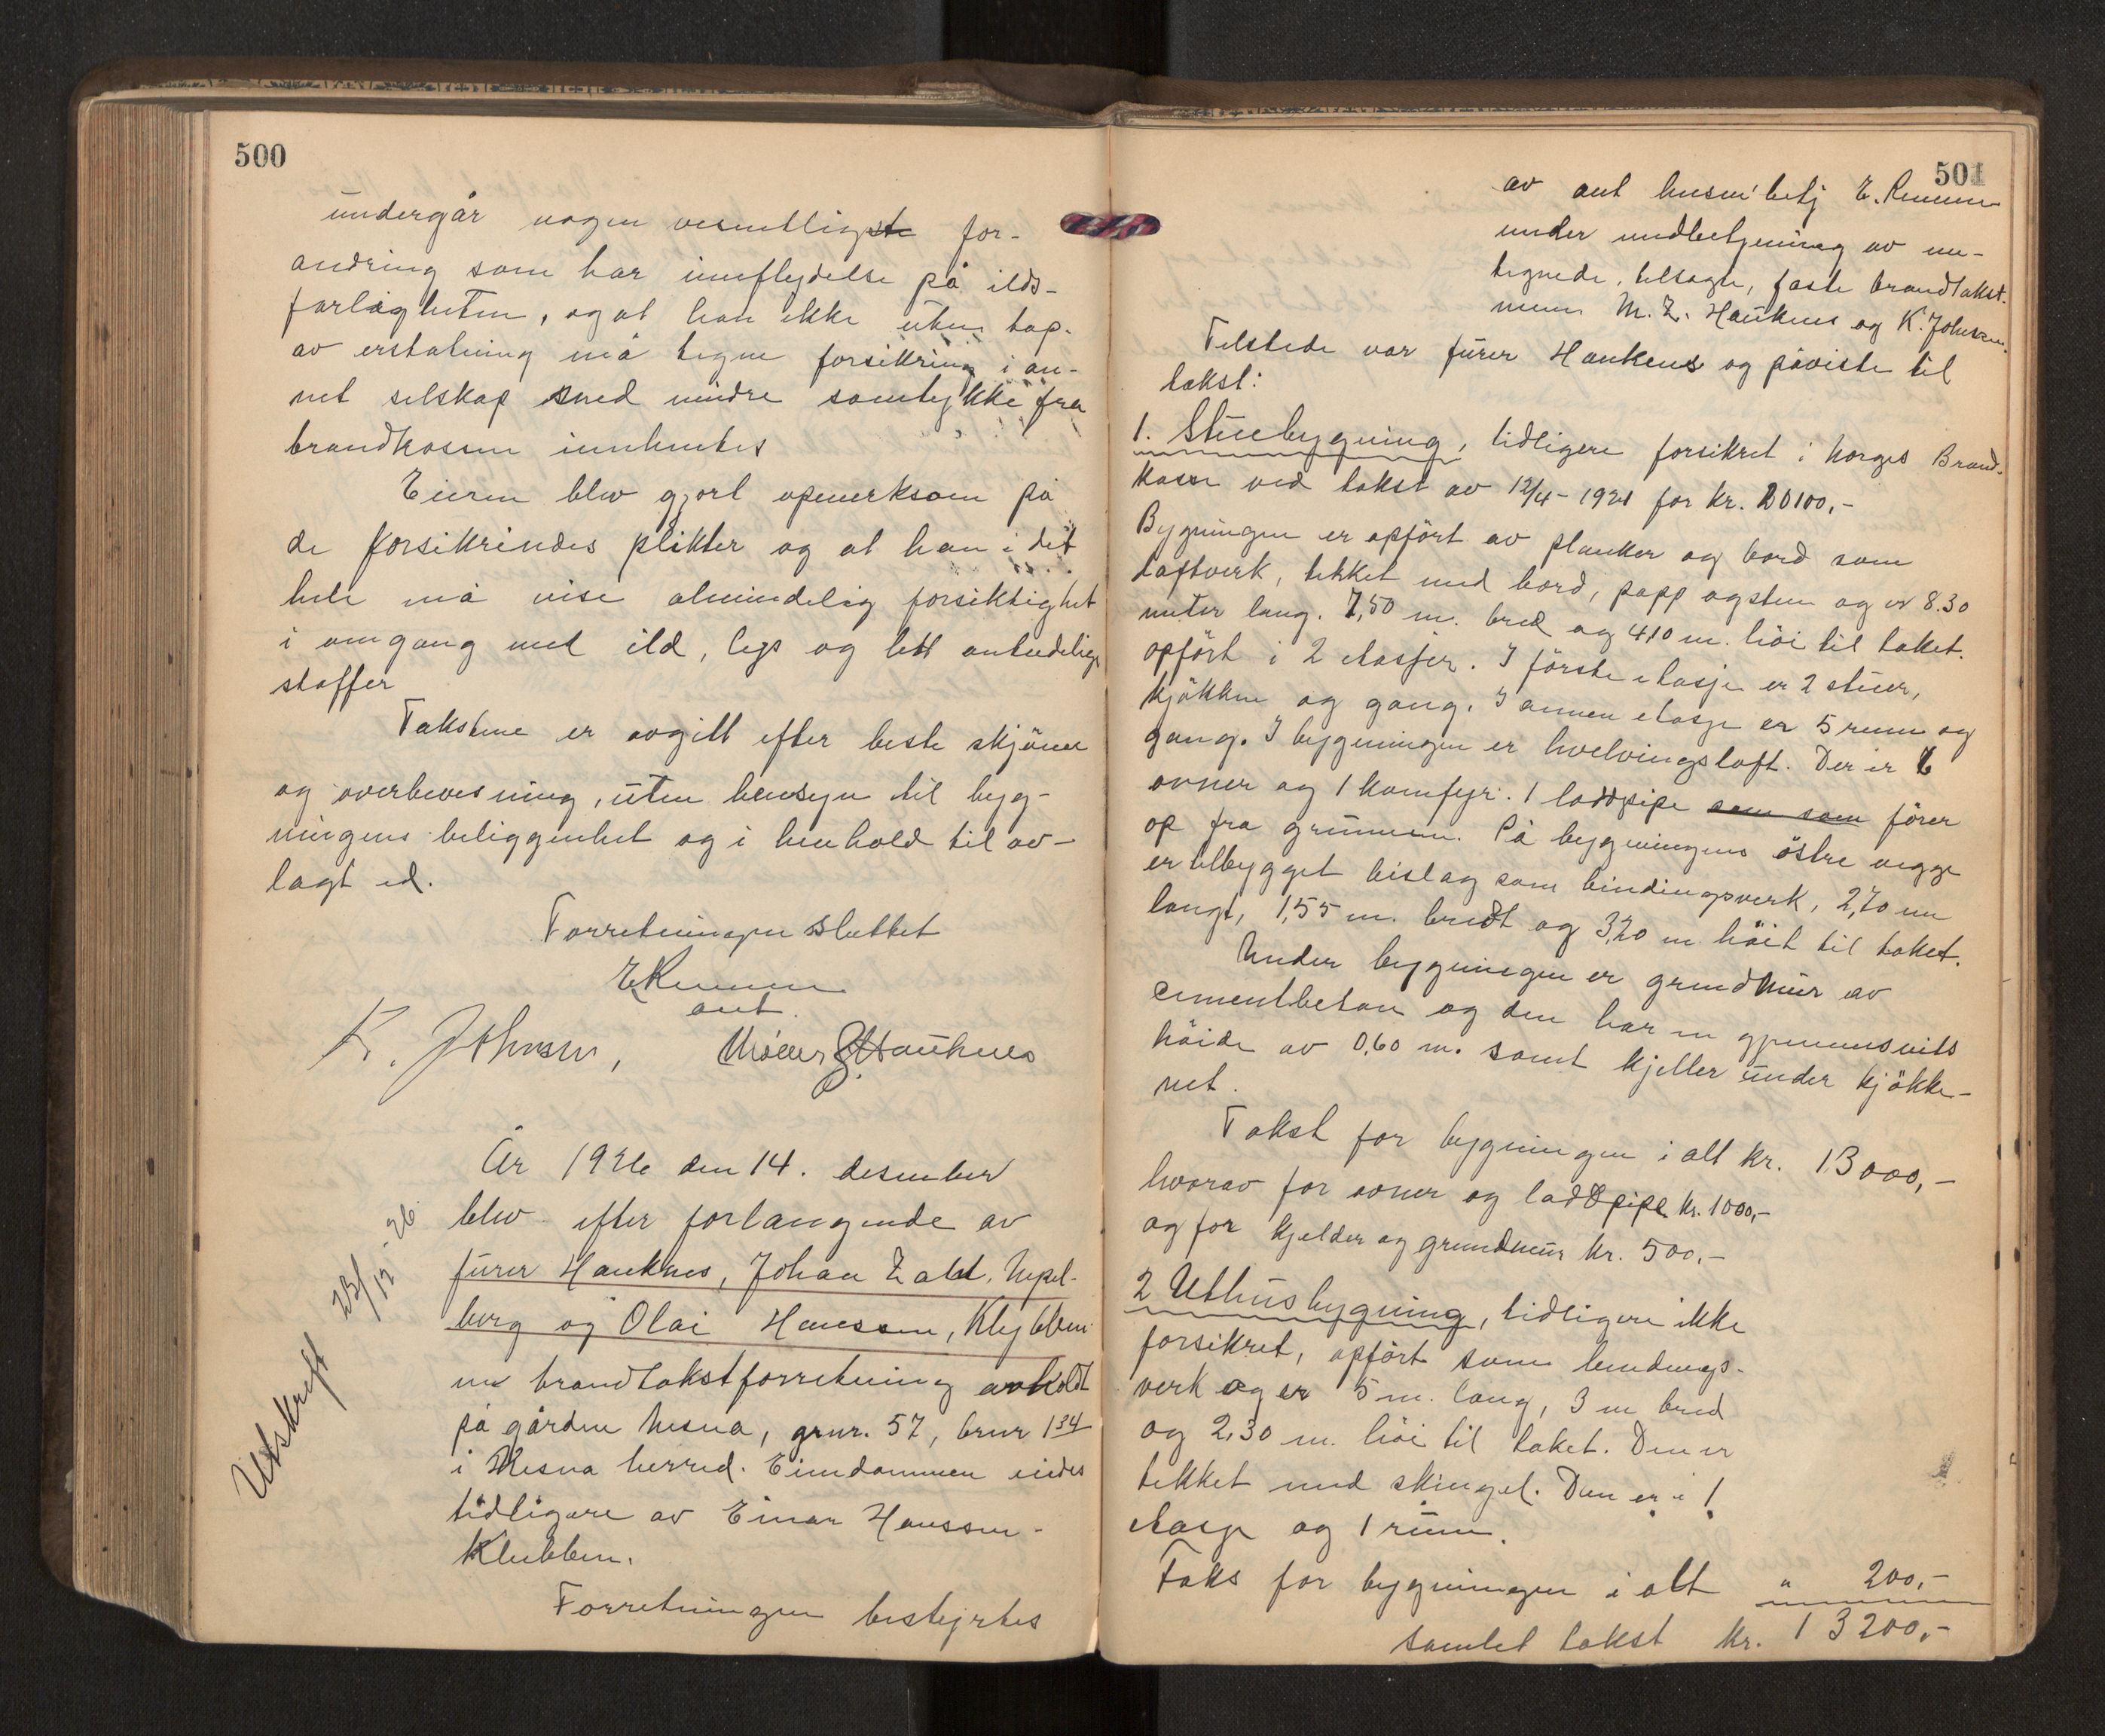 500
undergår nogen vesentligste for-
andring som har innflydelse på ilds-
farligheten, og at han ikke uten tap
av erstatning må tegne forsikring i an-
net selskap med mindre samtykke fra
brandkassen innhentes
Eieren blev gjort opmerksom på
de forsikrindes plikter og at han i det
hele må vise almindelig forsiktighet
i omgang med ild, lys og lett antendelige
stoffer
Takstene er avgitt efter beste skjönn
og overbevisning, uten hensyn til byg-
ningens beliggenhet og i henhold til av-
lagt ed.
Forretningen sluttet
E Remmen
ant.
K. Johnsen, Hauknes
År 1926 den 14. desember
blev efter forlangende av
furer Hauknes, Johan Zahl, Nepel-
berg og Olai Hanssen, Klybben
en brandtakstforretning avholdt
på gården Nesna, grnr. 57, brnr 134
i Nesna herred. Eiendommen eiedes
tidligere av Einar Hanssen
Klubben.
Forretningen bestyrtes
Utskrift 23/12-26.
501
av ant lensm' betj E. Remmen
under undbetjening av un-
tegnede, tilsagte, faste brandtakst-
menn M. Z. Hauknes og K. Johnsen.
Tilstede var furer Hauknes og påviste til
takst:
1. Stuebygning, tidligere forsikret i Norges Brand-
kasse ved takst av 12/4-1921 for kr. 20100,-
Bygningen er opfört av planker og bord som
laftverk, tekket med bord, papp og sten og er 8.30
meter lang. 7,50 m. bred og 4,10 m. höi til taket.
opfört i 2 etasjer. I förste etasje er 2 stuer,
kjökken og gang. I annen etasje er 5 rum og
gang. I bygningen er hvelvingsloft. Der er 6
ovner og 1 komfyr. 1 laddpipe som som förer
op fra grunnen. På bygningens östre vegge
er tilbygget bislag som bindingsverk, 2,70 m
langt, 1,55 m. bredt og 3,20 m. höit til taket.
Under bygningen er grundmur av
cimentbeton og den har en gjennemsnits
höide av 0,60 m. samt kjeller under kjökke-
net.
Takst for bygningen i alt kr. 13000,-
hvorav for ovner og laddpipe kr. 1000,-
og for kjelder og grundmur kr. 500,-
2 Uthusbygning, tidligere ikke
forsikret, opfört som bindings-
verk og er 5 m. lang, 3 m bred
og 2,30 m. höi til taket. Den er
tekket med skingel. Den er i 1
etasje og 1 rum.
Taks for bygningen i alt " 200,-
samlet takst kr. 13200,-